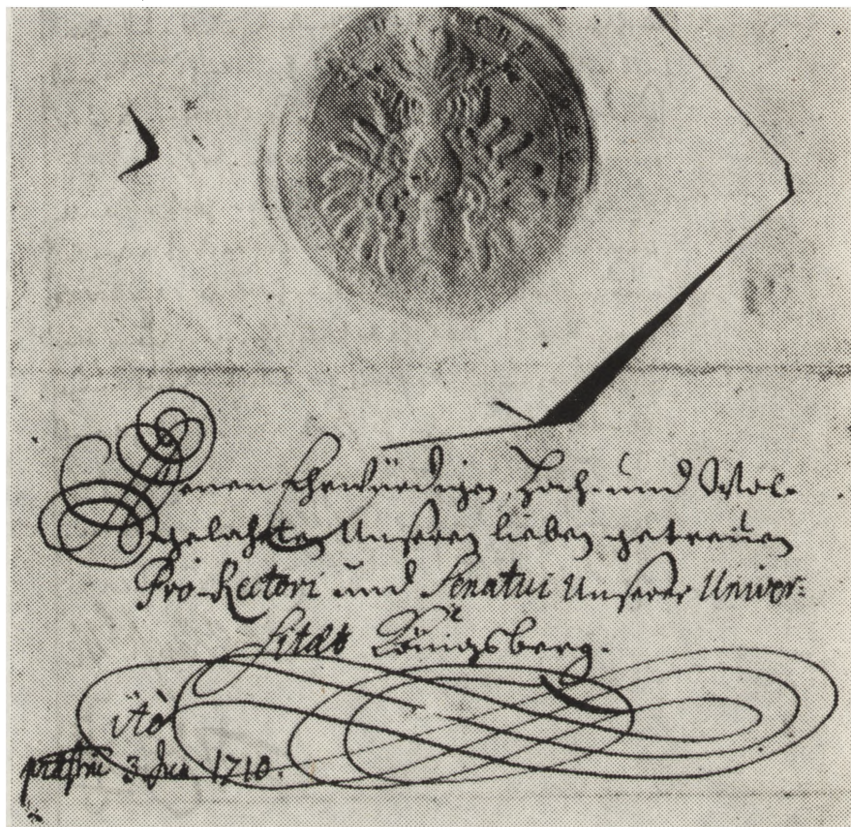 Denen Ehrwürdigen, Hoch- und Wol-
gelahrten Unseren lieben getreuen
Pro-Rectori und Senatui Unserer Univer-
sität Königsberg.
3 Jun 1710.